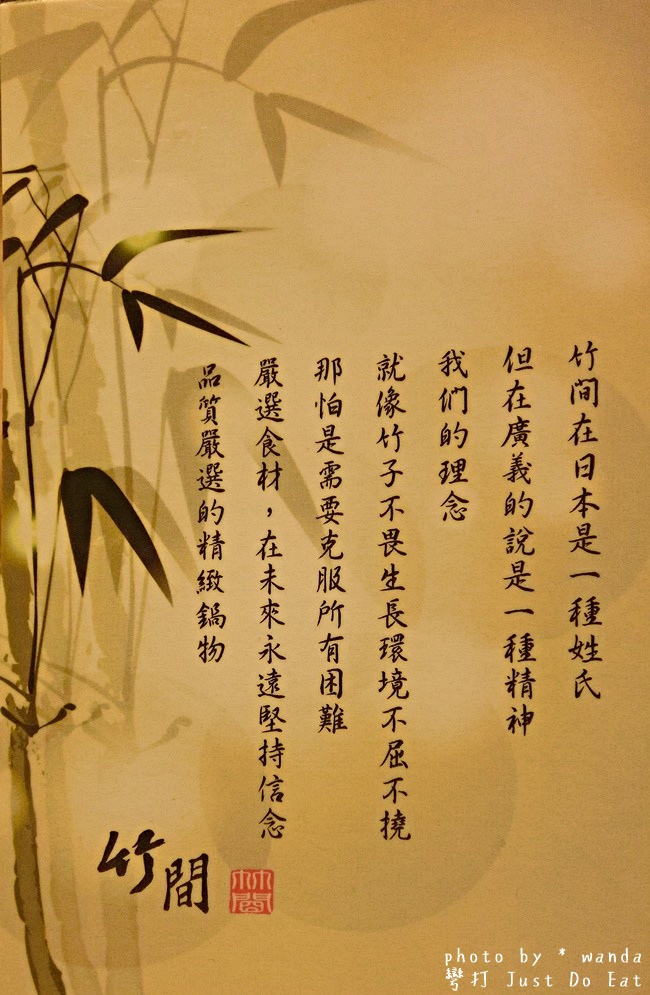 竹間在日本是一種姓氏
但在廣義的說是一種精神
我們的理念
就像竹子不畏生長環境不屈不撓
那怕是需要克服所有困難
嚴選食材，在未來永遠堅持信念
品質嚴選的精緻鍋物
竹間
竹間
photo by * wanda
彎打 Just Do Eat